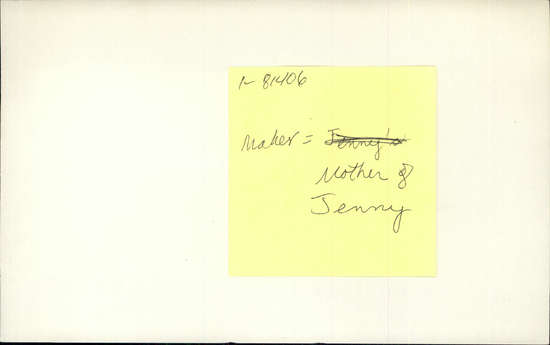 1- 81406
Maker = Jenny's
Mother of
Jenny